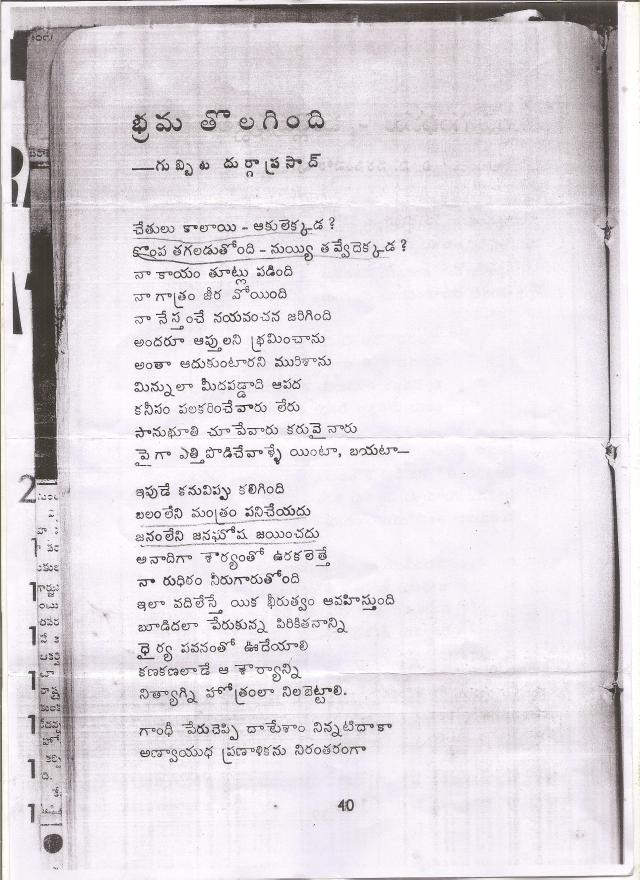 భ్రమ తొలగింది
—గుబ్బిట దుర్గాప్రసాద్
చేతులు కాలాయి - ఆకులెక్కడ?
కొంప తగలడుతోంది - నుయ్యి తవ్వేదెక్కడ?
నా కాయం తూట్లు పడింది
నా గాత్రం జీర వోయింది
నా నేస్తంచే నయవంచన జరిగింది
అందరూ ఆప్తులని భ్రమించాను
అంతా ఆదుకుంటారని మురిశాను
మిన్నులా మీదపడ్డాది ఆపద
కనీసం పలకరించేవారు లేరు
సానుభూతి చూపేవారు కరువైనారు
పైగా ఎత్తిపొడిచేవాళ్ళే యింటా, బయటా—
ఇపుడే కనువిప్పు కలిగింది
బలంలేని మంత్రం పనిచేయదు
జనంలేని జనఘోష జయించదు
అనాదిగా శౌర్యంతో ఉరకలెత్తే
నా రుధిరం నీరుగారుతోంది
ఇలా వదిలేస్తే యిక భీరుత్వం ఆవహిస్తుంది
బూడిదలా పేరుకున్న పిరికితనాన్ని
ధైర్య పవనంతో ఊదేయాలి
కణకణలాడే ఆ శౌర్యాన్ని
నిత్యాగ్ని హోత్రంలా నిలబెట్టాలి.
గాంధీ పేరుచెప్పి దాటేశాం నిన్నటిదాకా
అణ్వాయుధ ప్రణాళికను నిరంతరంగా
40